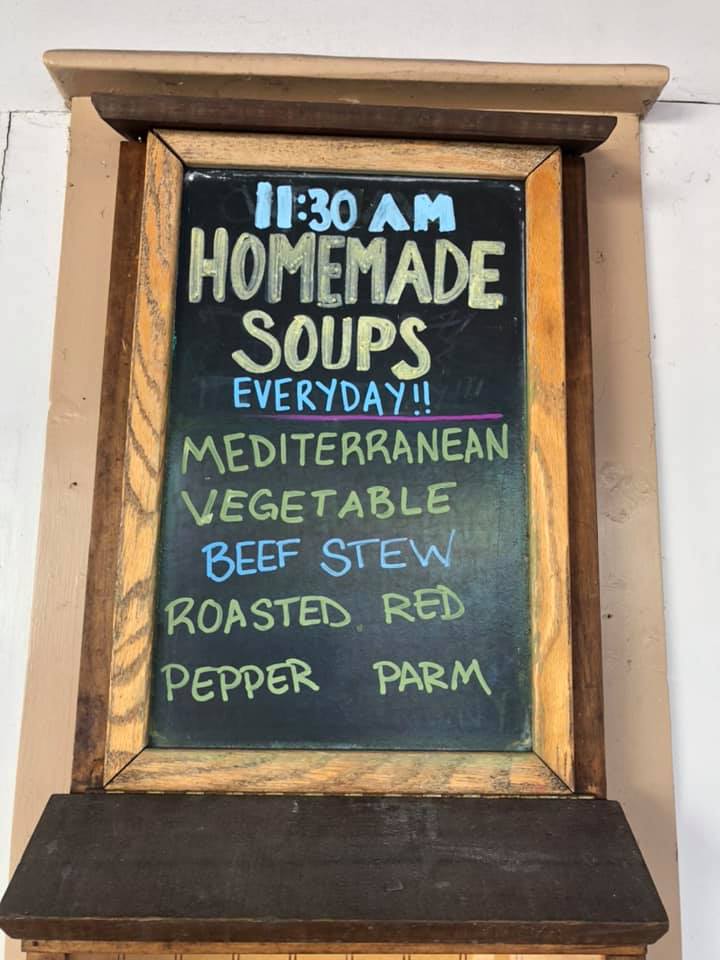 11:30 AM
HOMEMADE
SOUPS
EVERYDAY!!
MEDITERRANEAN
VEGETABLE
BEEF STEW
ROASTED RED
PEPPER PARM